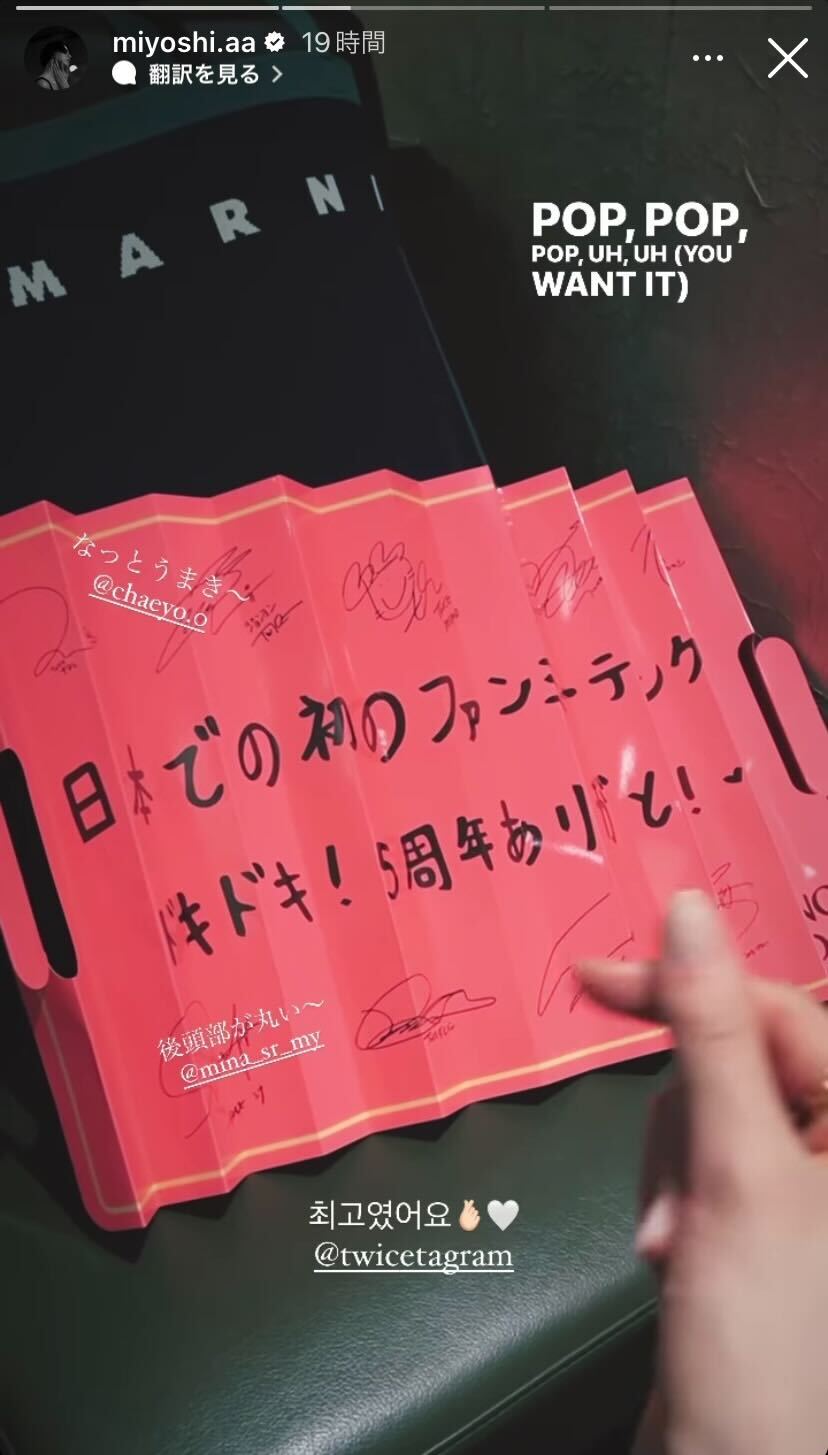 miyoshi.aa 19時間
翻訳を見る
MARN
POP, POP,
POP, UH, UH (YOU
WANT IT)
なっとうまき〜
@chaeyo.o
ジョンヨン
日本での初のファンミーティング
ドキドキ! 5周年ありがと!
後頭部が丸い〜
@mina_sr_my
최고였어요🫰🏻🤍
@twicetagram